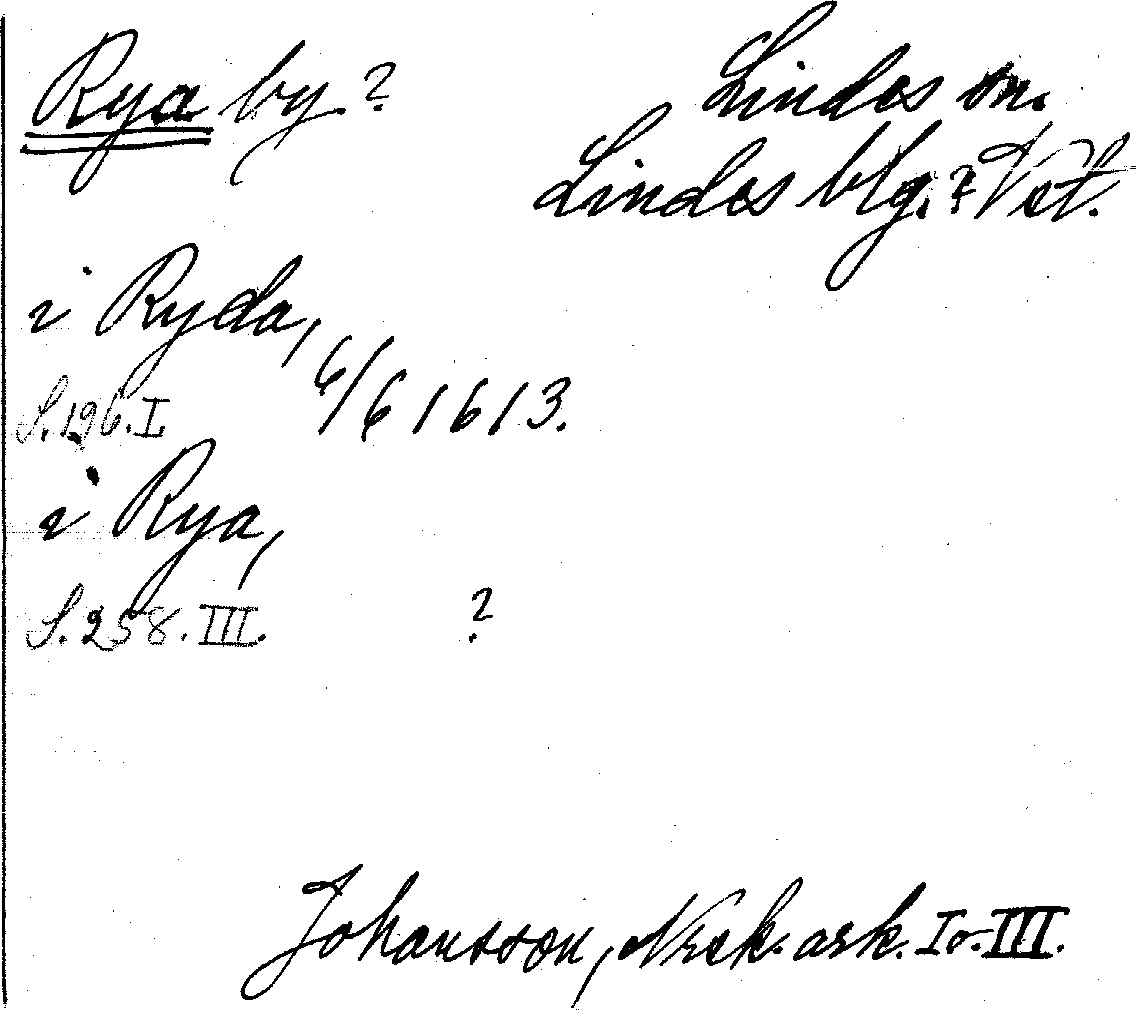 Rya by. ?
Lindes sn.
Lindes blg. ? Vst.
i Ryda,
S. 196. I. 6/6 1613.
i Rya,
S. 258. III. ?
Johansson, Nock. ark. I o. III.